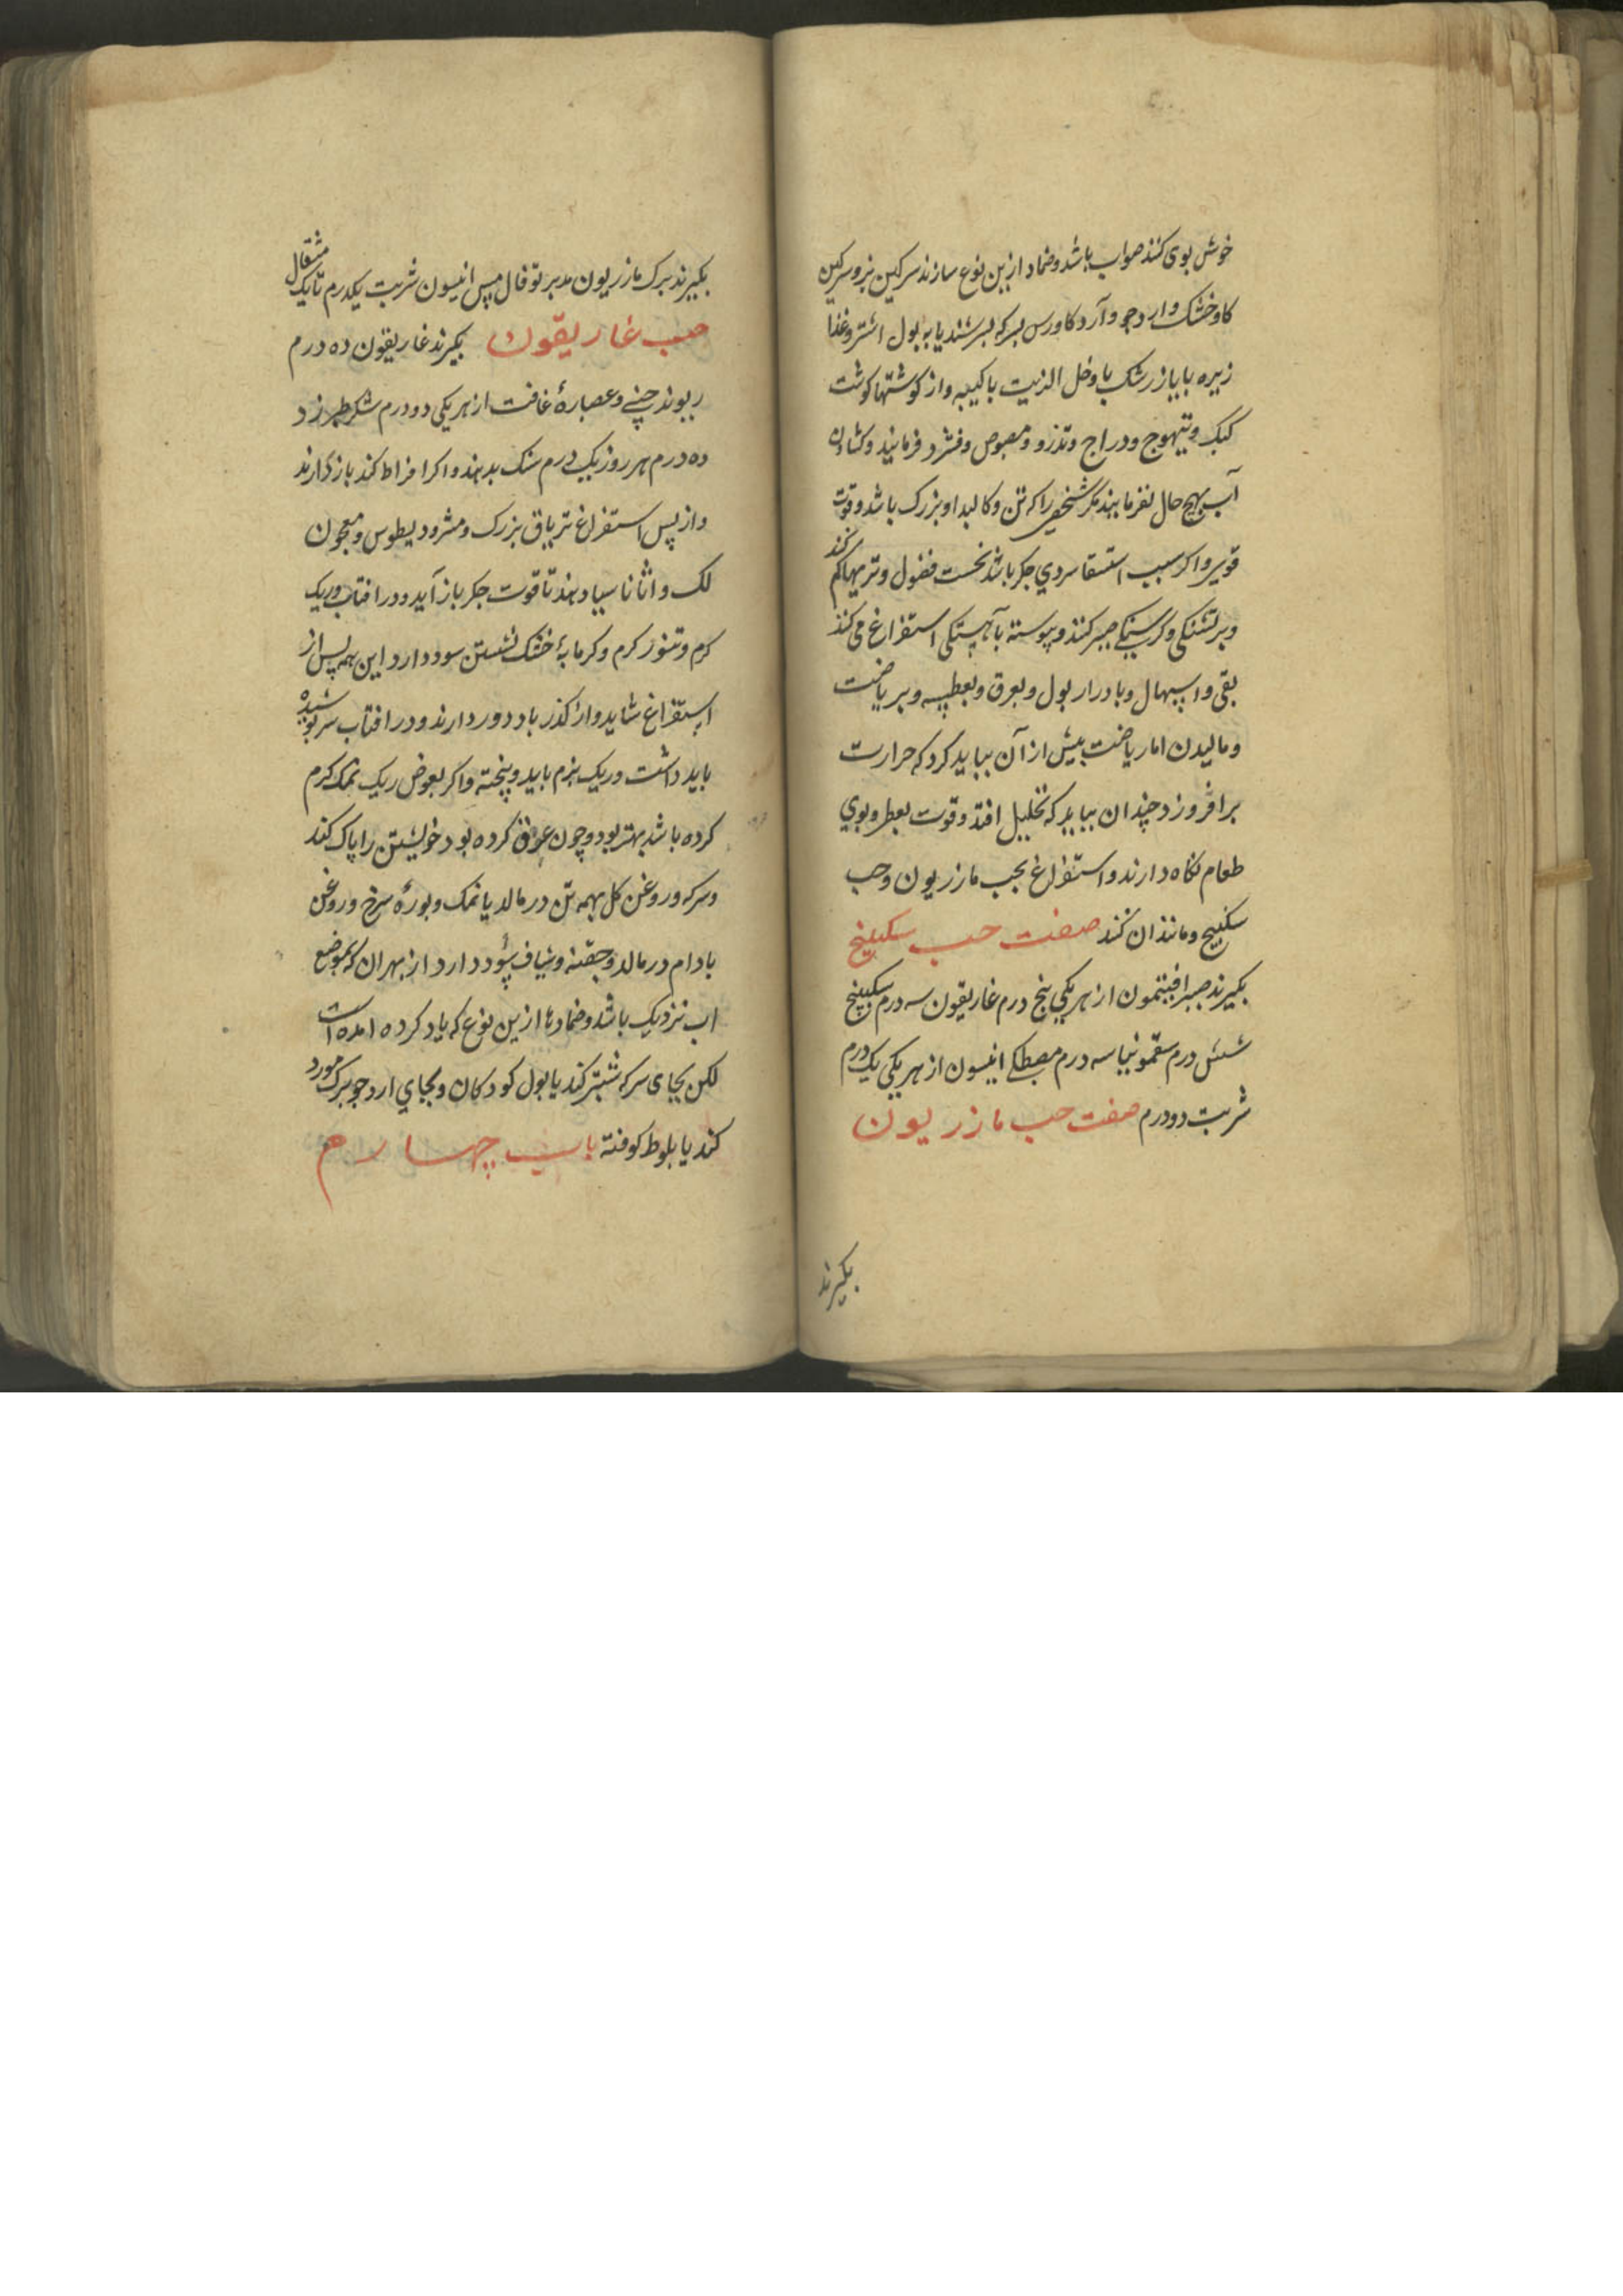 خوش بوی کنند صواب باشد و ضماد ازین نوع سازند سرکین بز و سرکین
کاو خشک و ارد جو و آرد کاورس بسرکه بسرشند یا به بول اشتر و غذا
زیره بابا زرشک با و خل الزیت با کیبه و از کوشتها کوشت
کبک و تیهوج و دراج و تذرو و مصوص و فشرد فرمایند و کشادن
آب بهیچ حال نفرمایند مکر شخصی را که تن و کالبد او بزرک باشد و قوت
قوی و اکر سبب استسقا سردی جکر باشد نخست فضول و تریها کم کند
و بر تشنکی و کرسنکی صبر کنند و پیوسته بآهستکی استفراغ می کنند
بقی و اسهال و بادرار بول و بعرق و بعطسه و بریاضت
و مالیدن اما ریاضت بیش از آن بباید کرد که حرارت
برافروزد چندان بباید که تحلیل افتد و قوت بعطر و بوی
طعام نکاه دارند و استفراغ بحب مازریون و حب
سکبینج و مانند ان کنند صفت حب سکبینج
بکیرند صبر افیتمون از هر یکی پنج درم غاریقون سه درم سکبینج
شش درم سقمونیا سه درم مصطکی انیسون از هر یکی یک درم
شربت دو درم صفت حب مازریون
بکیرند
بکیرند برک مازریون مدبر توفال مس انیسون شربت یکدرم تا یک مثقال
حب غاریقون بکیرند غاریقون ده درم
ریوند چنی و عصارهٔ غافت از هر یکی دو درم شکر طبرزد
ده درم هر روز یک درم سنک بدهند و اکر افراط کند باز دارند
و از پس استفراغ تریاق بزرک و مثرودیطوس و معجون
لک و اثاناسیا دهند تا قوت جکر باز آید و در افتاب و ریک
کرم و تنور کرم و کرمابهٔ خشک نشستن سود دارد این همه پس از
استفراغ شاید و از کذر باد دور دارند و در افتاب سر پوشیده
باید داشت و ریک نرم باید و پخته و اکر بعوض ریک نمک کرم
کرده باشد بهتر بود و چون عرق کرده بود خویشتن را پاک کند
و سرکه و روغن کل بهمه تن در مالد یا نمک و بورهٔ سرخ و روغن
بادام در مالد و حقنه و شیاف سود دارد از بهر ان که بموضع
اب نزدیک باشد و ضمادها ازین نوع که یاد کرده امده است
لکن بجای سرکه شبتر کند یا بول کودکان و بجای ارد جو برک مورد
کند یا بلوط کوفته باب چهارم